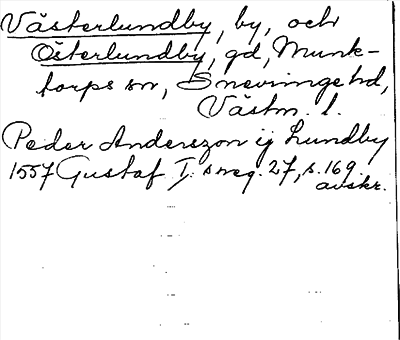 Västerlundby, by, och
Österlundby, gd, Munk-
torps sn, Snevringe hd,
Västm. l.
Peder Anderszon ij Lundby
1557 Gustaf I:s reg. 27, s. 169.
avskr.